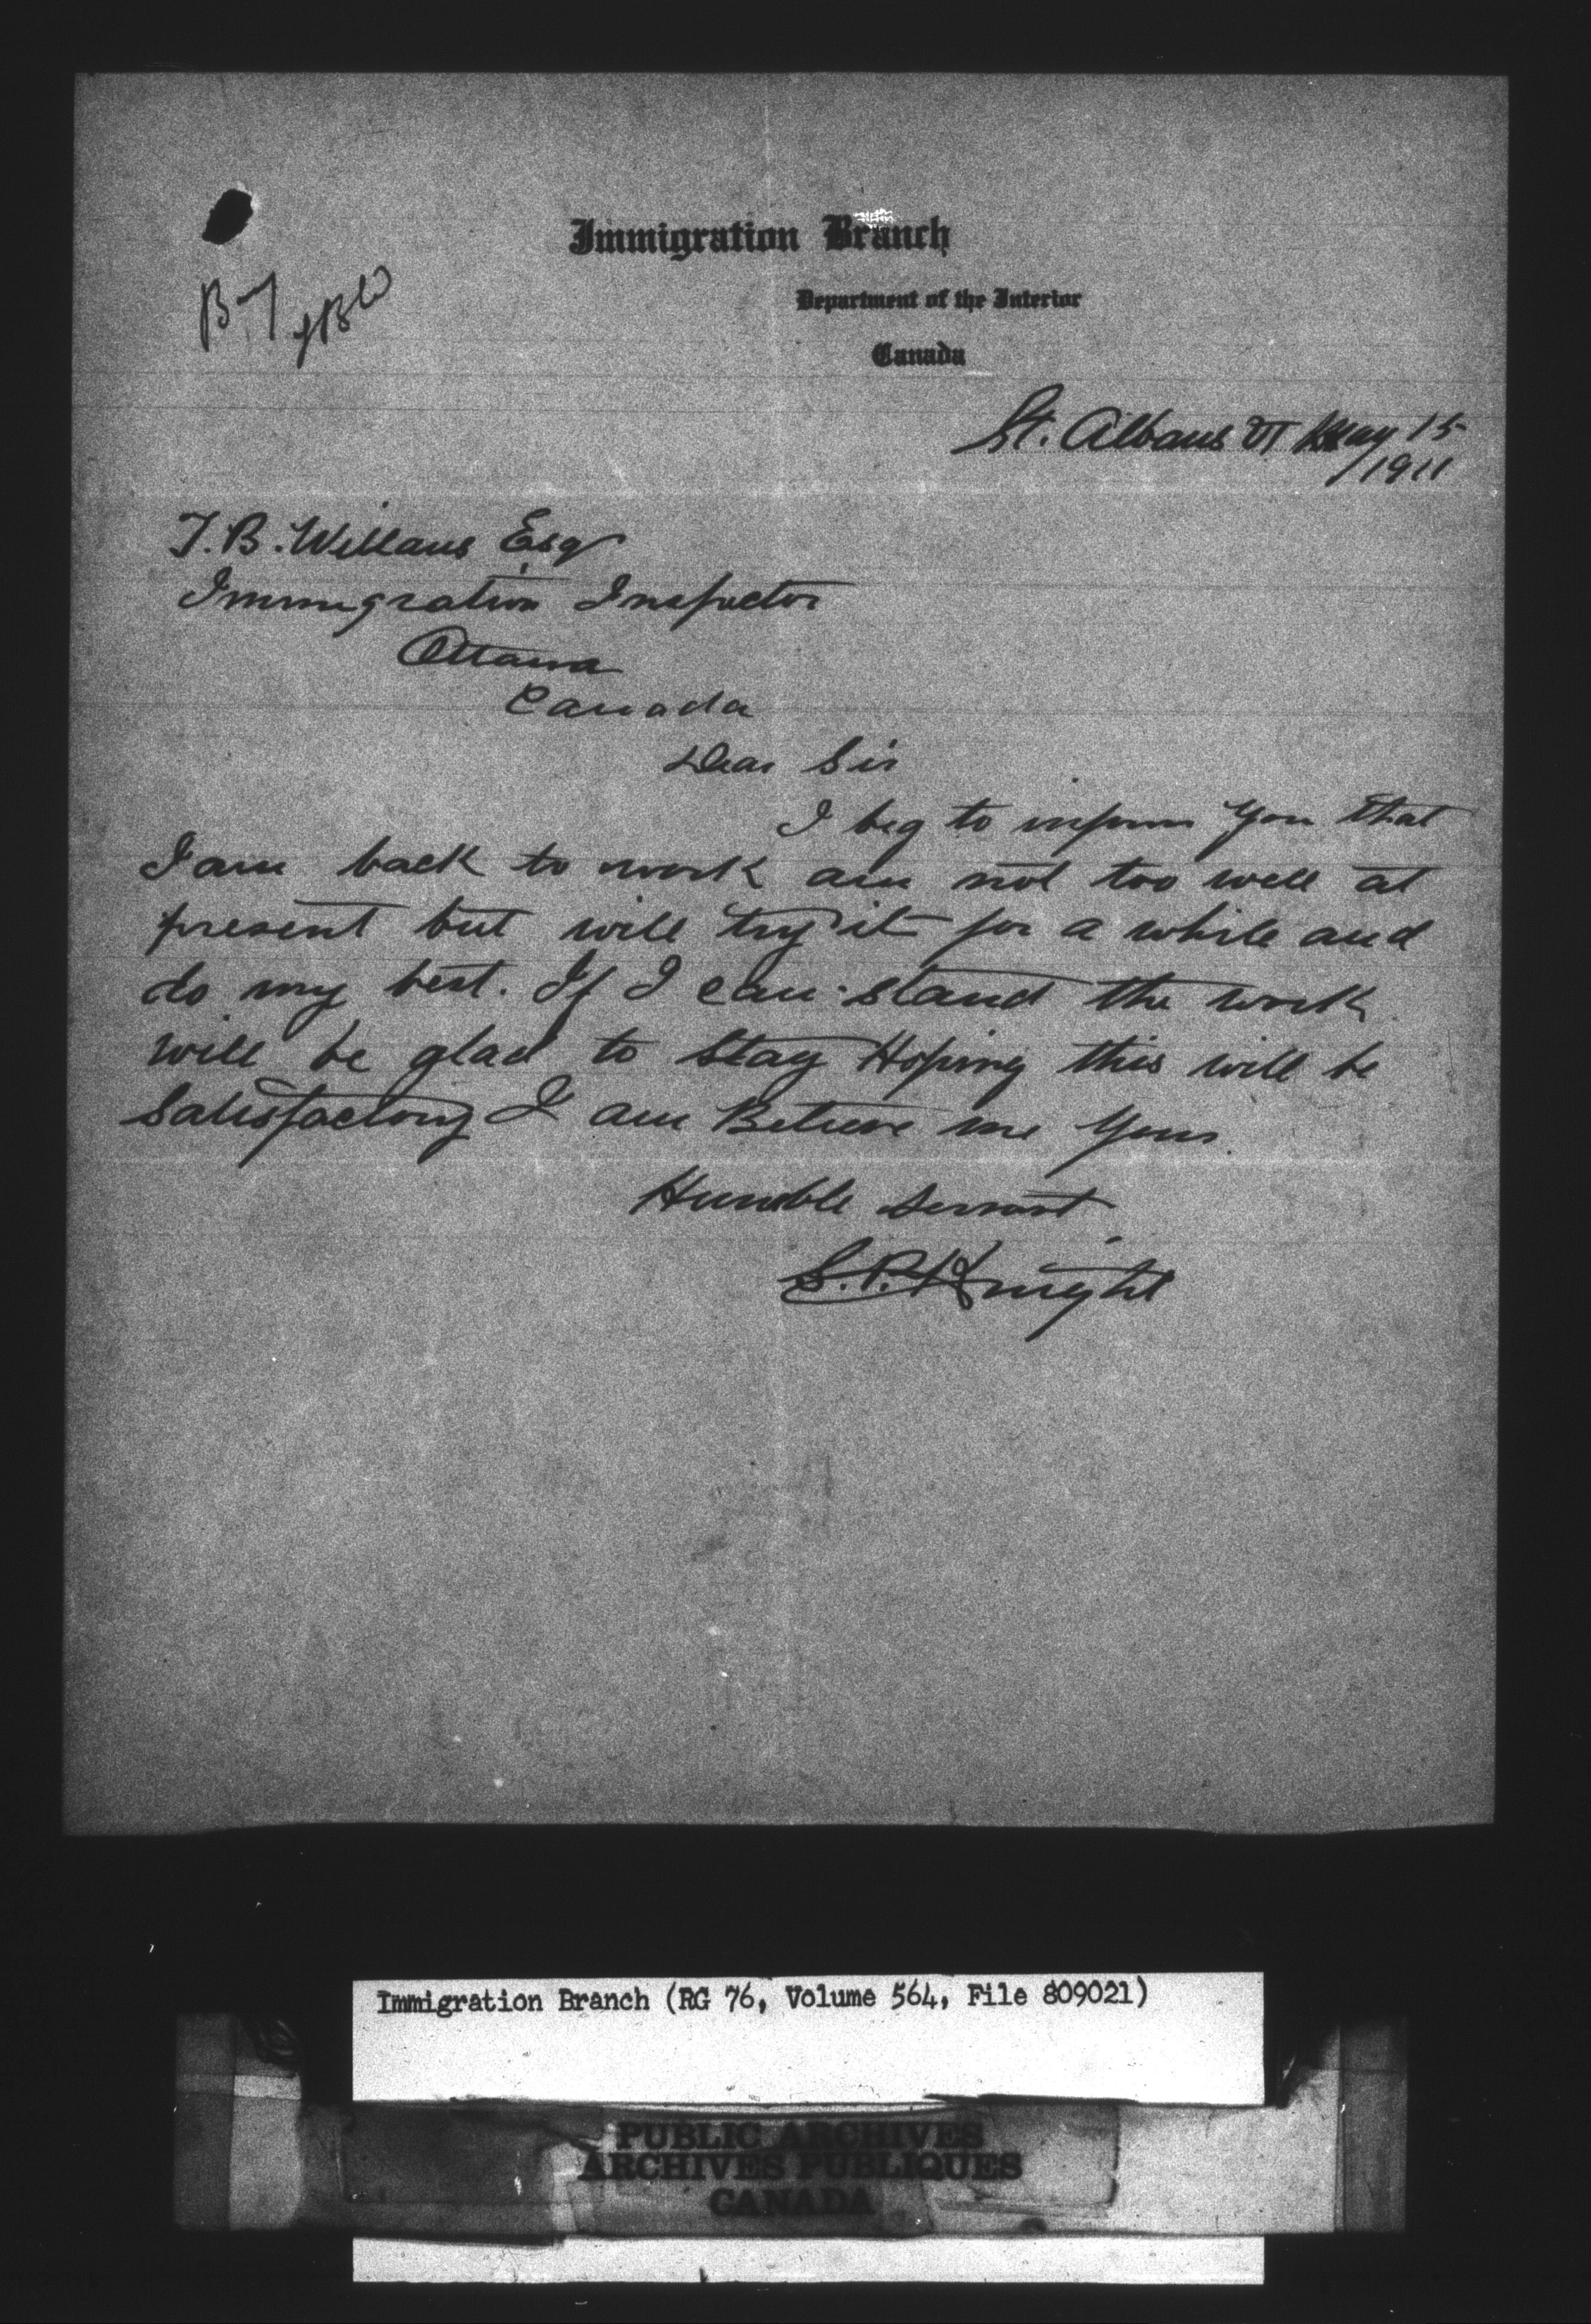 Immigration Branch
Department of the Interior
Canada
St. Albans VT May 15
1911
T. B. Willans Esq
Immigration Inspector
Ottawa
Canada
Dear Sir
I beg to inform you that
I am back to work am not too well at
present but will try it for a while and
do my best. If I can stand the work
will be glad to stay Hoping this will be
satisfactory I am Believe me Yours
Humble Servant
S. P. Knight
Immigration Branch (RG 76, Volume 564, File 809021)
PUBLIC ARCHIVES
ARCHIVES PUBLIQUES
CANADA